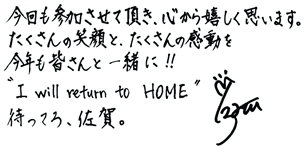 今回も参加させて頂き、心から嬉しく思います。
たくさんの笑顔と、たくさんの感動を
今年も皆さんと一緒に!!
"I will return to HOME"
待ってろ、佐賀。